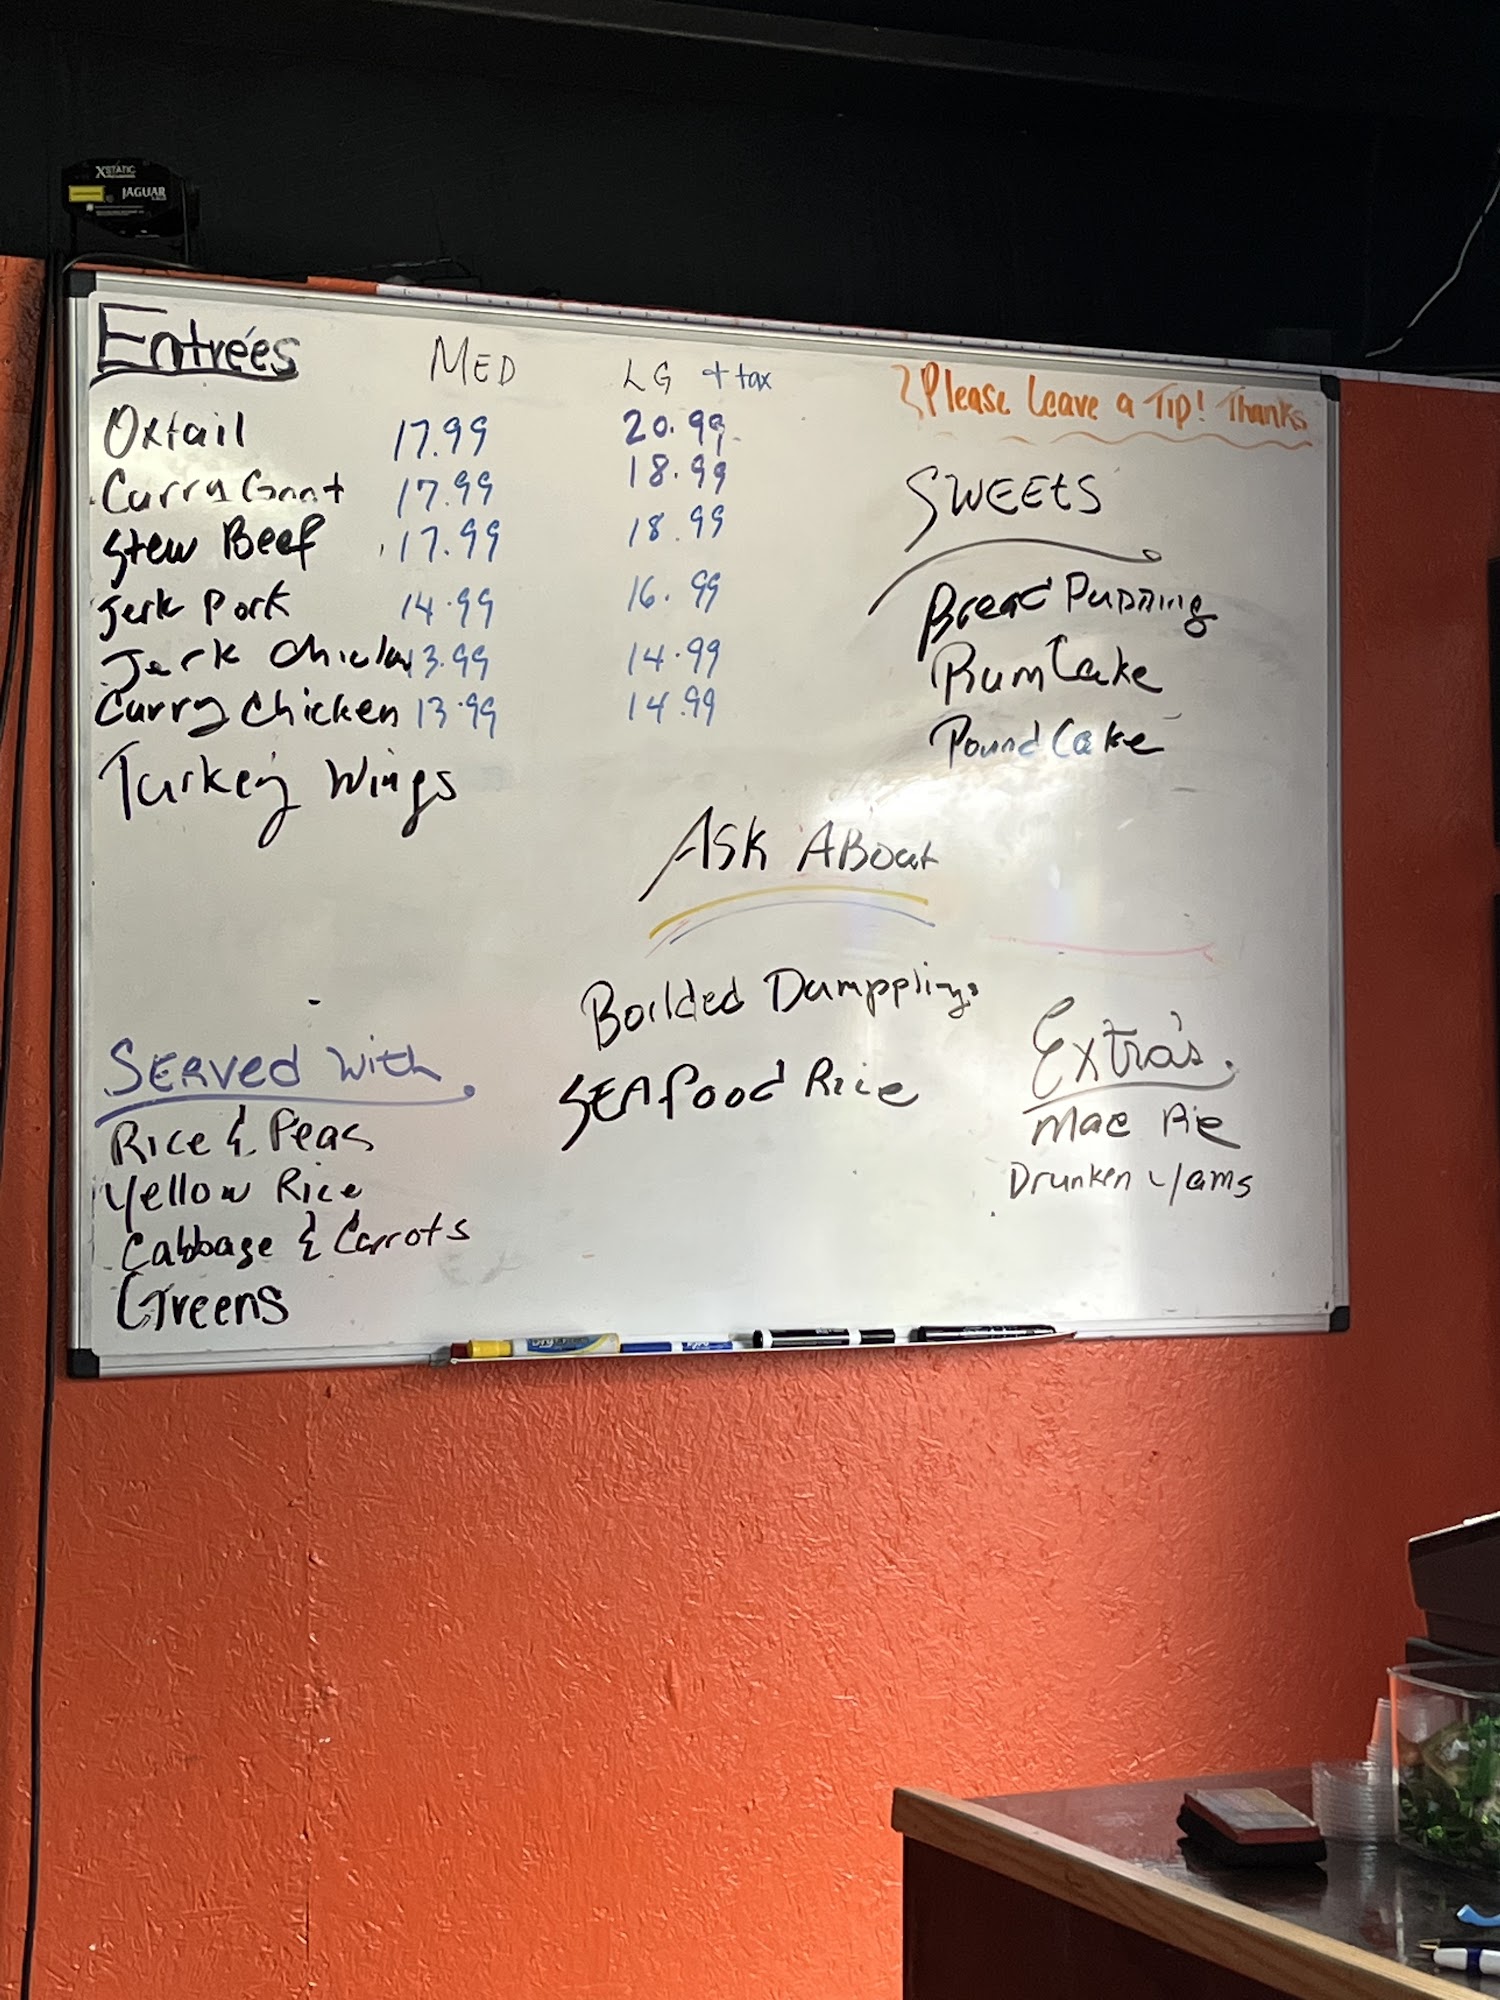 XSTATIC
JAGUAR
Entrées MED LG + tax
Oxtail 17.99 20.99
Curry Goat 17.99 18.99
Stew Beef 17.99 18.99
Jerk Pork 14.99 16.99
Jerk Chicken 13.99 14.99
Curry Chicken 13.99 14.99
Turkey Wings
Please Leave a Tip! Thanks
SWEEtS
Bread Pudding
Rum Cake
Pound Cake
Ask ABout
Boilded Dumpplings
SEAfood Rice
SERVed With
Rice & Peas
Yellow Rice
Cabbage & Carrots
Greens
Extra's
Mac Pie
Drunken Yams